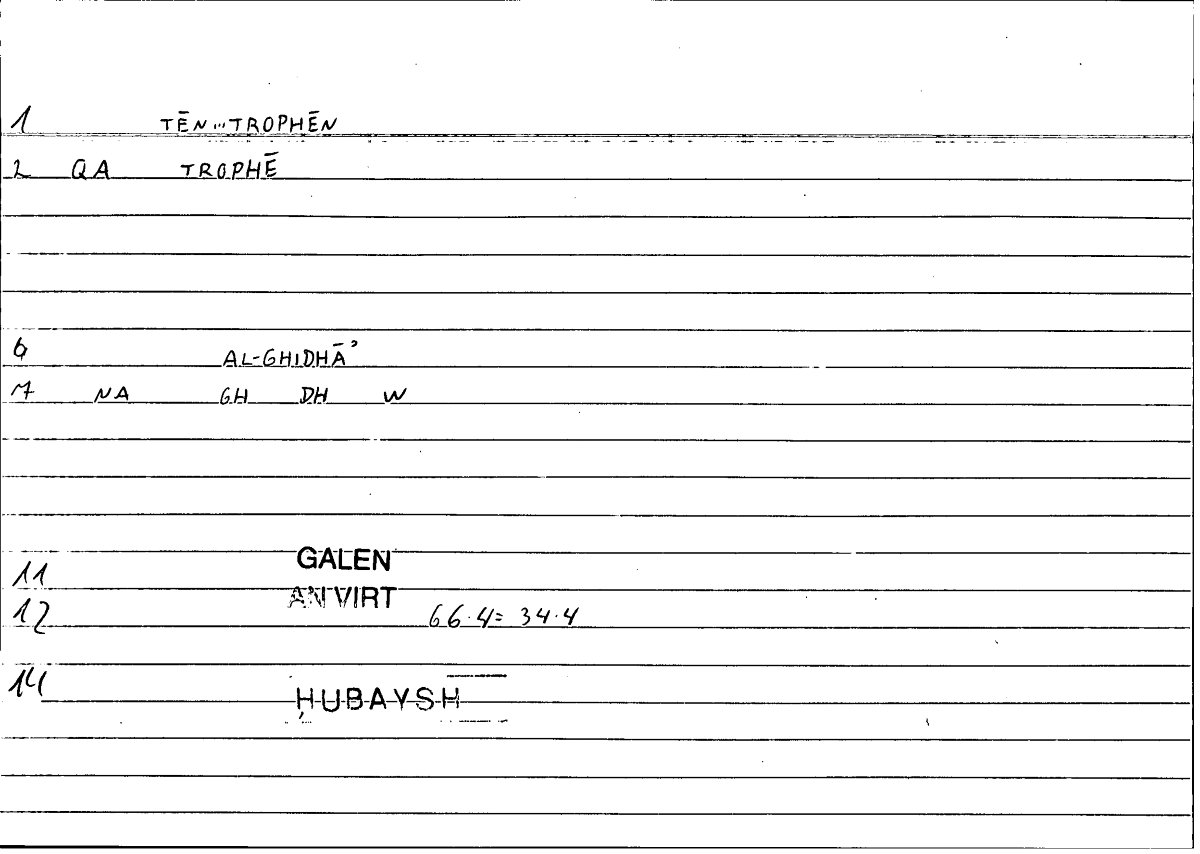 1 TĒN...TROPHĒN
2 QA TROPHĒ
6 AL-GHIDHĀʾ
7 NA GH DH W
11 GALEN
12 AN VIRT 66.4= 34.4
14 ḤUBAYSH